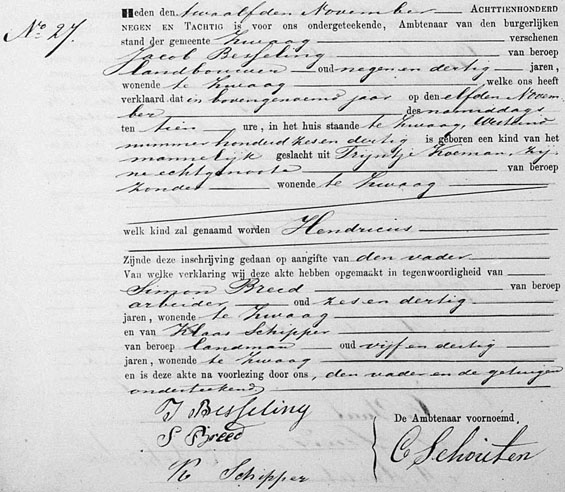 No. 27.
Heden den twaalfden November ACHTTIENHONDERD
NEGEN EN TACHTIG is voor ons ondergeteekende, Ambtenaar van den burgerlijken
stand der gemeente Zwaag verschenen
Jacob Besseling van beroep
landbouwer oud negen en dertig jaren,
wonende te Zwaag welke ons heeft
verklaard dat in bovengenoemd jaar op den elfden Novem-
ber des namiddags
ten tien ure, in het huis staande te Zwaag, Westeind
nummer honderd zes en dertig is geboren een kind van het
mannelijk geslacht uit Trijntje Koeman, zij-
ne echtgenoote van beroep
zonder wonende te Zwaag
welk kind zal genaamd worden Hendricus
Zijnde deze inschrijving gedaan op aangifte van den vader
Van welke verklaring wij deze akte hebben opgemaakt in tegenwoordigheid van
Simon Breed van beroep
arbeider oud zes en dertig
jaren, wonende te Zwaag
en van Klaas Schipper
van beroep landman oud vijf en dertig
jaren, wonende te Zwaag
en is deze akte na voorlezing door ons, den vader en de getuigen
onderteekend
J Besseling
S Breed
K Schipper
De Ambtenaar voornoemd,
C Schouten